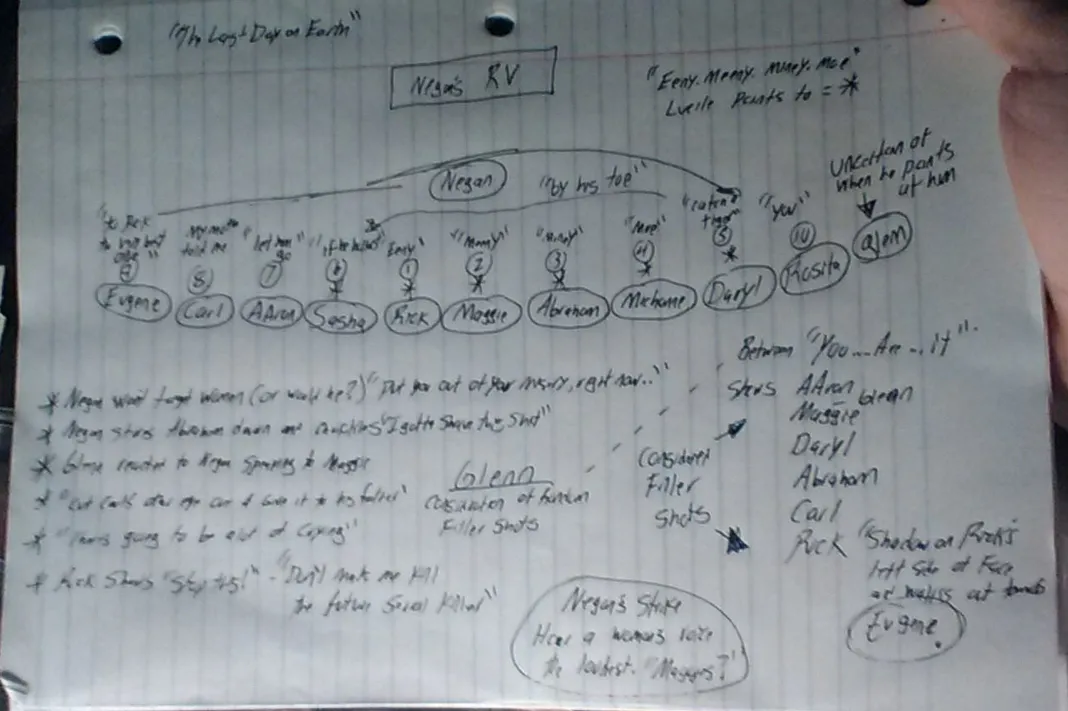 "The Last Day on Earth"
Negan's RV
"Eeny. Meeny. Miney. Moe"
Lucile Points to = *
Uncertian of
when he points
at him
Negan
"by his toe"
"to Rick
⑨
Eugene
My mom
told me
⑧
Carl
"let him
go
⑦
AAron
"if he hollers"
*
Sasha
Eeny"
①
*
Rick
"Meeny"
②
*
Maggie
"Miney"
③
*
Abraham
"Moe"
④
*
Michonne
"catch a
tiger"
⑤
*
Daryl
"You"
⑩
Rosita
Glen
* Negan won't target women (or would he?) "Put you out of your misery, right now.."
* Negan stares Abraham down and "I gotta Shave this Shit"
* Glenn reacted to Negan speaking to Maggie
* "Cut Carl's other eye out & feed it to his father"
* "There's going to be alot of crying"
* Rick Shouts "Stop this!" - "Don't make me kill
the future Serial Killer"
Glenn
Consideration of Random
Filler Shots
Considered
Filler
Shots
Between "You...Are...it".
Shots AAron
Maggie Glenn
Daryl
Abraham
Carl
Rick "Shadow on Rick's
left side of Face
Eugene.
Negan's Strike
Hear a woman's voice
the loudest. "Maggies?"